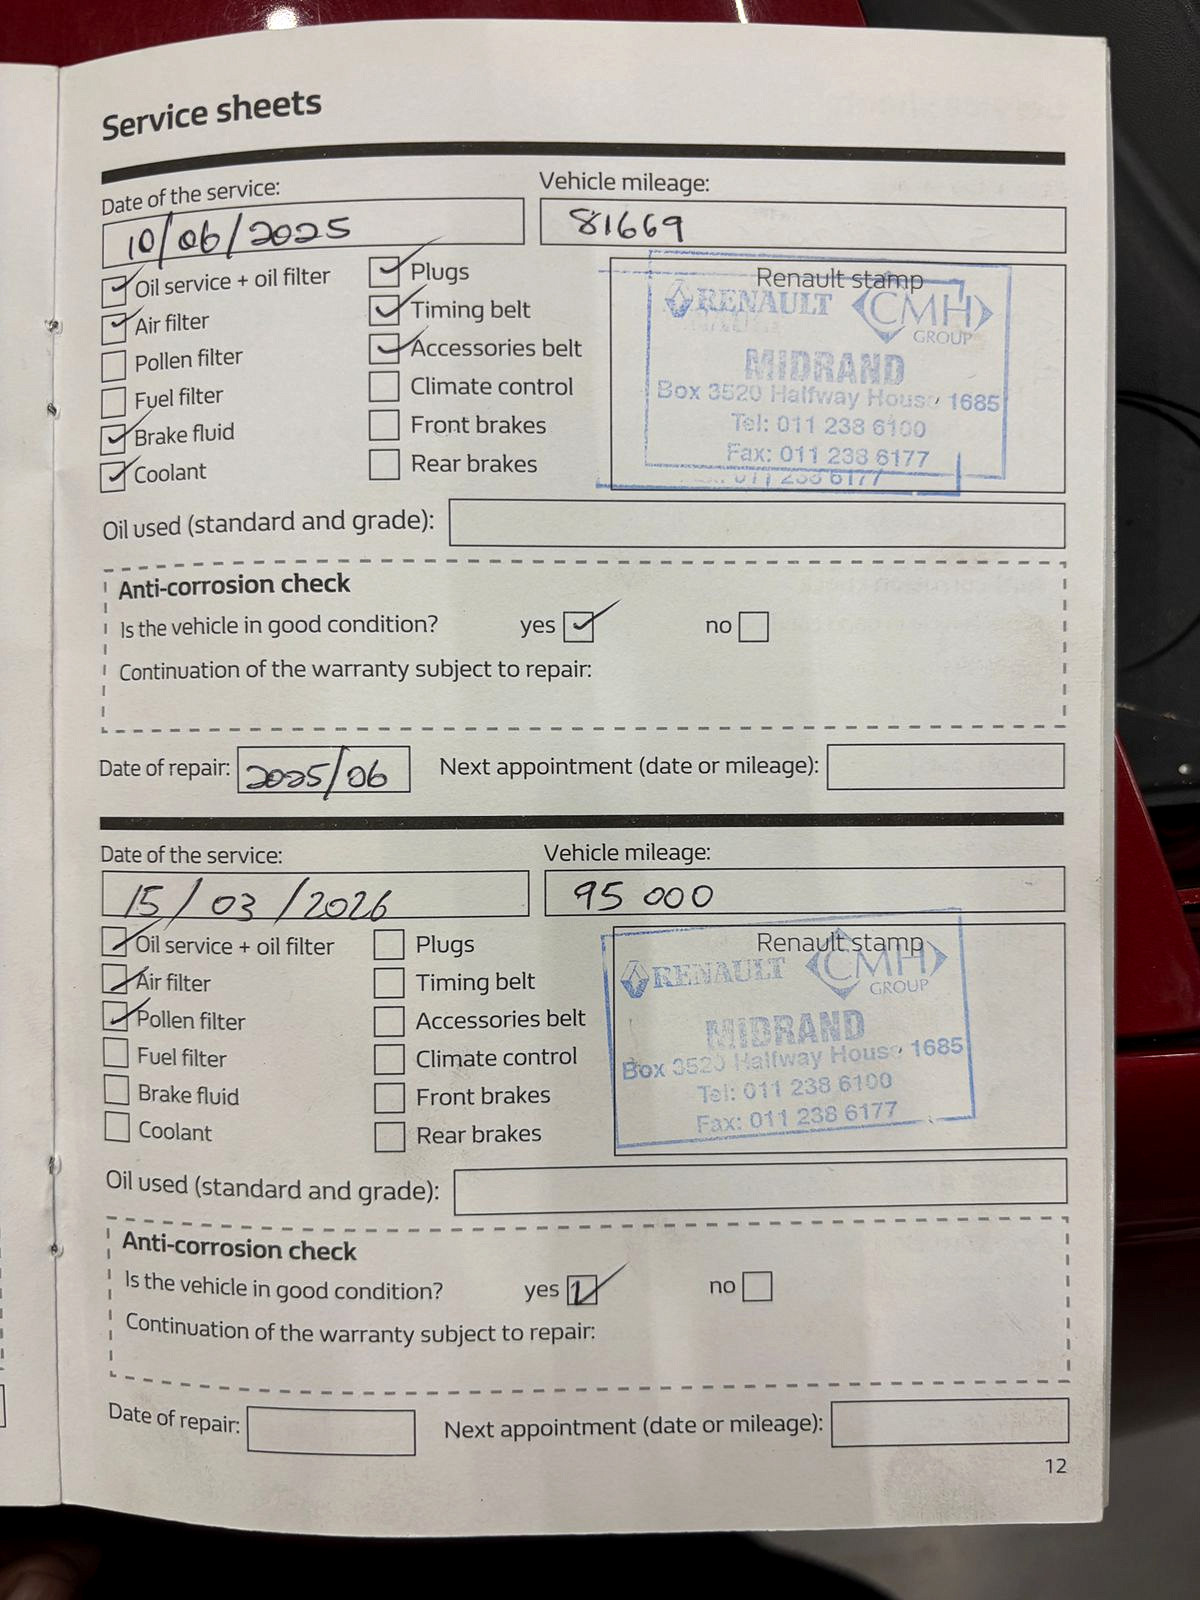 Service sheets
Date of the service:
Vehicle mileage:
10/06/2025
81669
Oil service + oil filter
Air filter
Pollen filter
Fuel filter
Brake fluid
Coolant
Plugs
Timing belt
Accessories belt
Climate control
Front brakes
Rear brakes
Renault stamp
RENAULT CMH
GROUP
MIDRAND
Box 3520 Halfway House 1685
Tel: 011 238 6100
Fax: 011 238 6177
011 238 6177
Oil used (standard and grade):
Anti-corrosion check
Is the vehicle in good condition? yes no
Continuation of the warranty subject to repair:
Date of repair: 2025/06 Next appointment (date or mileage):
Date of the service:
Vehicle mileage:
15/03/2026
95 000
Oil service + oil filter
Air filter
Pollen filter
Fuel filter
Brake fluid
Coolant
Plugs
Timing belt
Accessories belt
Climate control
Front brakes
Rear brakes
Renault stamp
RENAULT CMH
GROUP
MIDRAND
Box 3520 Halfway House 1685
Tel: 011 238 6100
Fax: 011 238 6177
Oil used (standard and grade):
Anti-corrosion check
Is the vehicle in good condition? yes no
Continuation of the warranty subject to repair:
Date of repair: Next appointment (date or mileage):
12